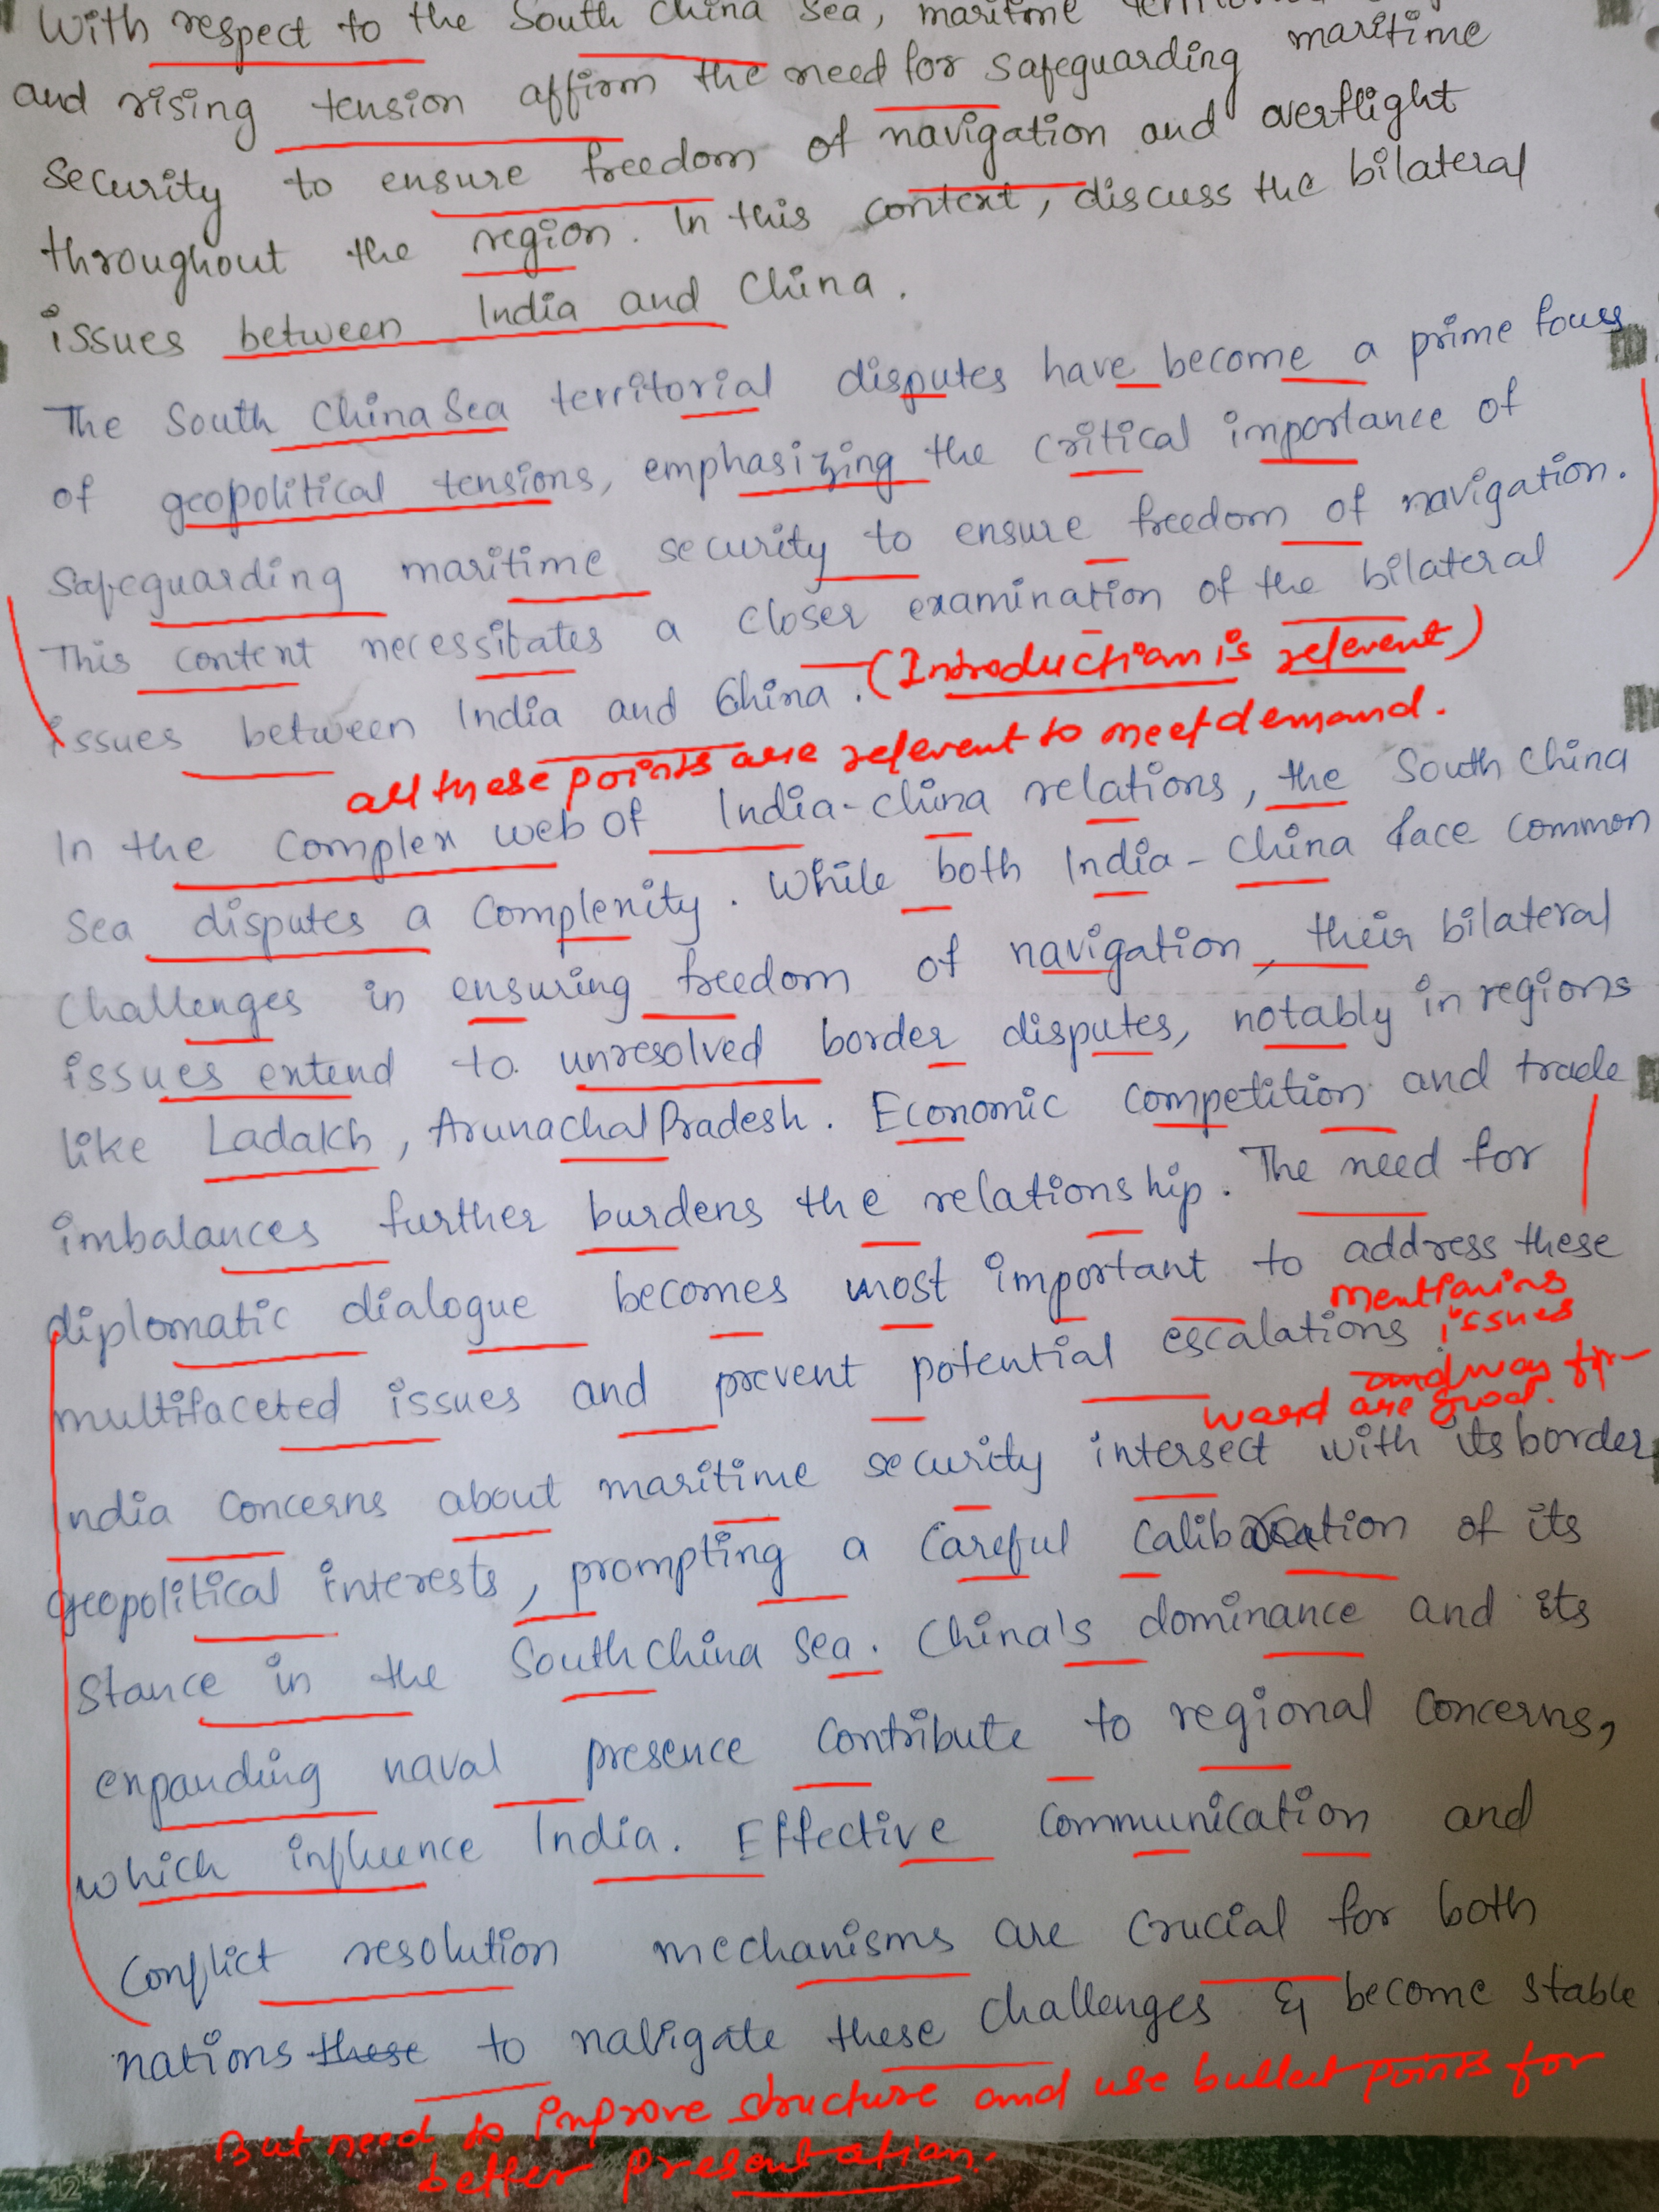 With respect to the South China Sea, maritime
and rising tension affirm the need for safeguarding maritime
security to ensure freedom of navigation and overflight
throughout the region. In this context, discuss the bilateral
issues between India and China.
The South China Sea territorial disputes have become a prime focus
of geopolitical tensions, emphasizing the critical importance of
Safeguarding maritime security to ensure freedom of navigation.
This context necessitates a closer examination of the bilateral
issues between India and China. (Introduction is relevent)
all these points are relevent to meet demand.
In the Complex web of India-China relations, the South China
Sea disputes a Complexity. While both India-China face common
Challenges in ensuring freedom of navigation, their bilateral
issues extend to unresolved border disputes, notably in regions
like Ladakh, Arunachal Pradesh. Economic Competition and trade
imbalances further burdens the relationship. The need for
diplomatic dialogue becomes most important to address these
mentioning
multifaceted issues and prevent potential escalations issues
and way for-
ward are good.
India Concerns about maritime security intersect with its border
geopolitical interests, prompting a Careful Calibration of its
Stance in the South China Sea. China's dominance and its
expanding naval presence Contribute to regional Concerns,
which influence India. Effective Communication and
Conflict resolution mechanisms are Crucial for both
nations these to navigate these Challenges & become stable
But need to improve structure and use bullet points for
better presentation.
12